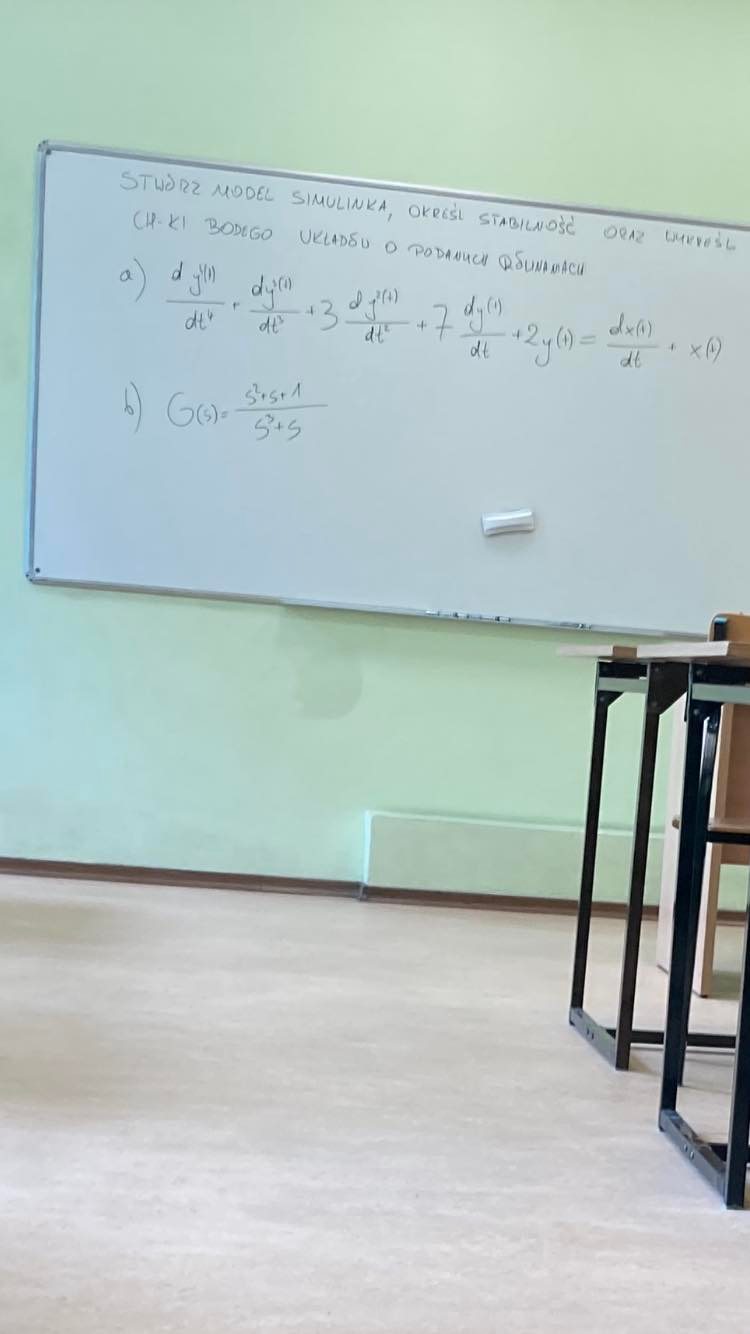 STWÓRZ MODEL SIMULINKA, OKREŚL STABILNOŚĆ ORAZ WYKREŚL
CH-KI BODEGO UKŁADU O PODANYCH RÓWNANIACH
a) d y⁴(t)/dt⁴ + dy³(t)/dt³ + 3 d y²(t)/dt² + 7 dy(t)/dt + 2y(t) = dx(t)/dt + x(t)
b) G(s) = (s²+s+1)/(s³+s)